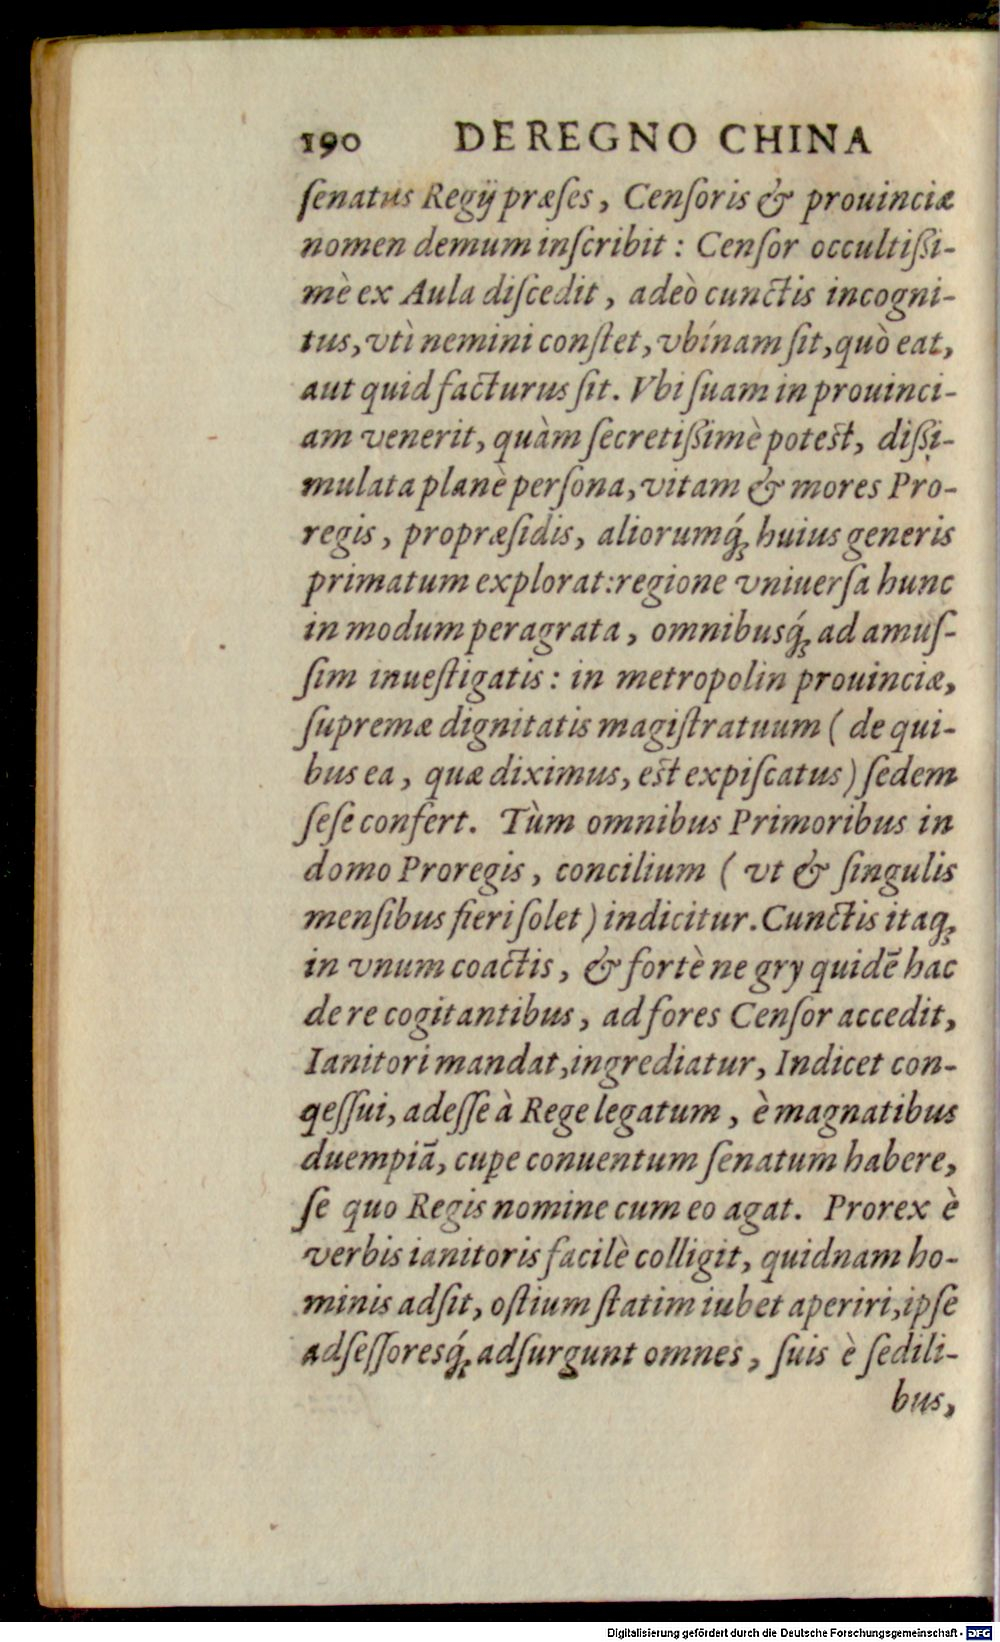 190 DE REGNO CHINA
ſenatus Regij præſes, Cenſoris & prouinciæ
nomen demum inſcribit : Cenſor occultiſſi-
mè ex Aula diſcedit, adeò cunctis incogni-
tus, vtì nemini conſtet, vbínam ſit, quò eat,
aut quid facturus ſit. Vbi ſuam in prouinci-
am venerit, quàm ſecretiſſimè potest, diſſi-
mulata planè perſona, vitam & mores Pro-
regis, propræſidis, aliorumq́ꝫ huius generis
primatum explorat: regione vniuerſa hunc
in modum peragrata, omnibusq́ꝫ ad amuſ-
ſim inueſtigatis : in metropolin prouinciæ,
ſupremæ dignitatis magiſtratuum ( de qui-
bus ea, quæ diximus, est expiſcatus) ſedem
ſeſe confert. Tùm omnibus Primoribus in
domo Proregis, concilium ( vt & ſingulis
menſibus fieri ſolet ) indicitur. Cunctis itaqꝫ
in vnum coactis, & fortè ne gry quidē hac
de re cogitantibus, ad fores Cenſor accedit,
Ianitori mandat, ingrediatur, Indicet con-
qeſſui, adeſſe à Rege legatum, è magnatibus
duempiā, cupe conuentum ſenatum habere,
ſe quo Regis nomine cum eo agat. Prorex è
verbis ianitoris facilè colligit, quidnam ho-
minis adſit, oſtium ſtatim iubet aperiri, ipſe
adſeſſoresq́ꝫ adſurgunt omnes, ſuis è ſedili-
bus,
Digitalisierung gefördert durch die Deutsche Forschungsgemeinschaft - DFG